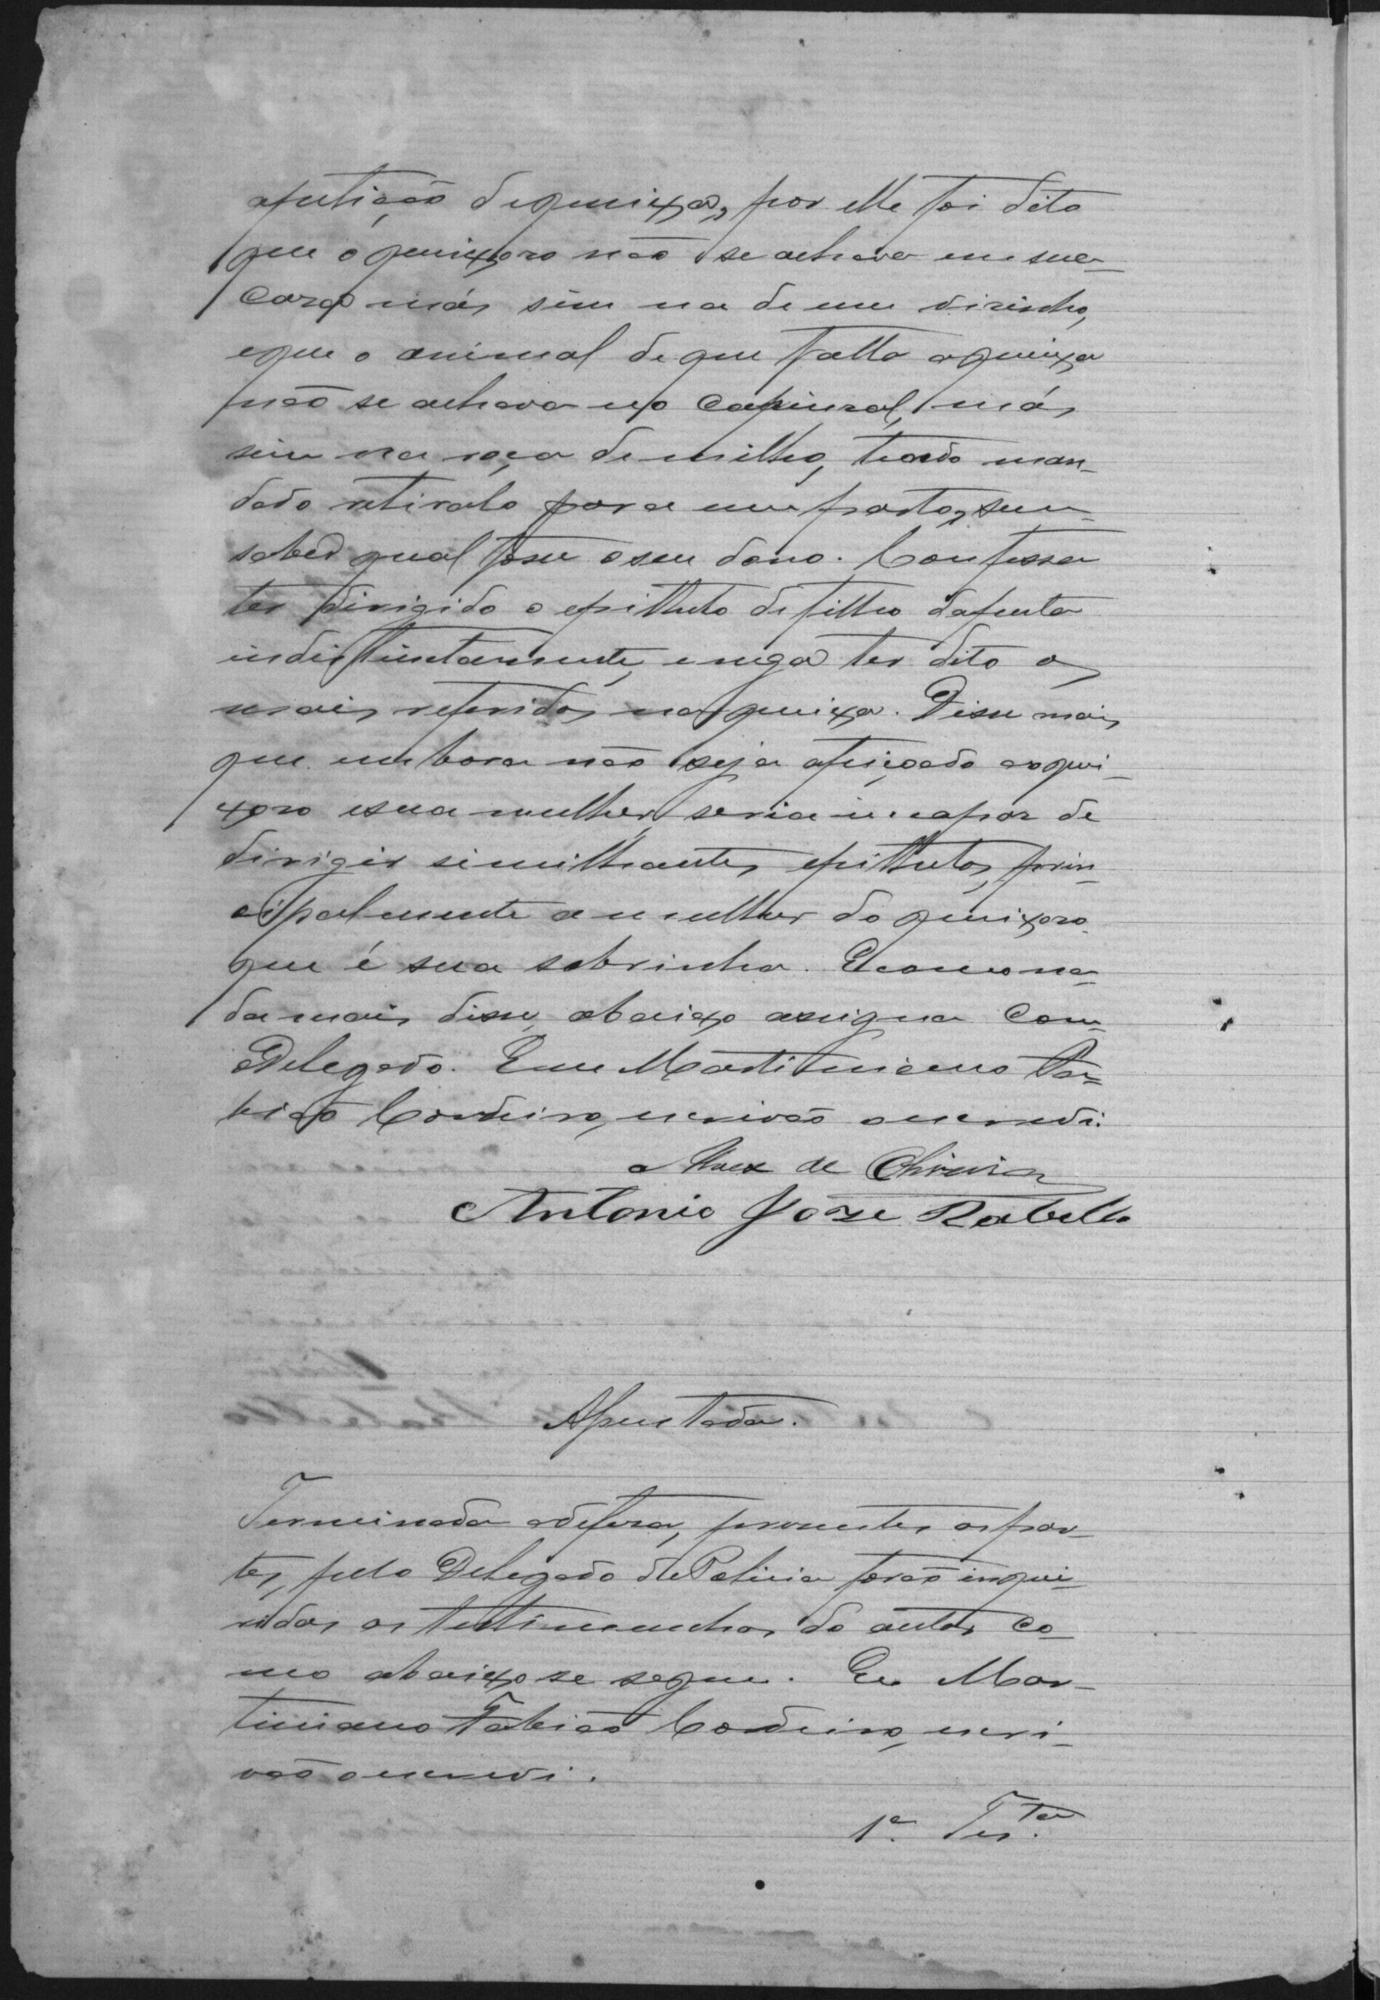 a petição de queixa, por elle foi dito
que o queixozo não se achava em sua
caza más sim na de um visinho,
e que o animal de que falla a queixa
não se achava no capinzal, más
sim na roça de milho, tendo man-
dado retiralo para um pasto, sem
saber qual fosse o seu dono. Confessa
ter dirigido o epitheto de filho da puta
indistinctamente, e nega ter dito os
mais referidos na queixa. Disse mais
que embora não seja afeiçoado ao quei-
xozo e sua mulher, seria incapaz de
dirigir similhantes epithetos, prin-
cipalmente a mulher do queixozo
que é sua sobrinha. E como na-
da mais disse, abaixo assigna com
Delegado. Eu Martimiano Fa-
bião Cordeiro, escrivão o escrevi.
Alvez de Oliveira
Antonio Joze Rabello
Assentada.
Terminada a defeza, prezentes as par-
tes, pelo Delegado de Policia forão inque-
ridas as testimunhas do autor co-
mo abaixo se segue. Eu Mar-
timiano Fabião Cordeiro, escri-
vão o escrevi.
1ª. Tes.ta